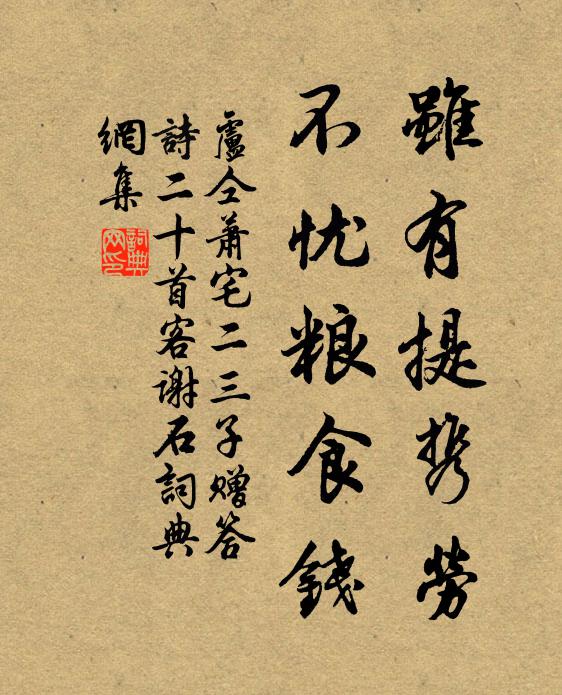 雖有提携勞
不忧粮食錢
盧仝萧宅二三子赠答
詩二十首客谢石詞典
網集
詞典网印